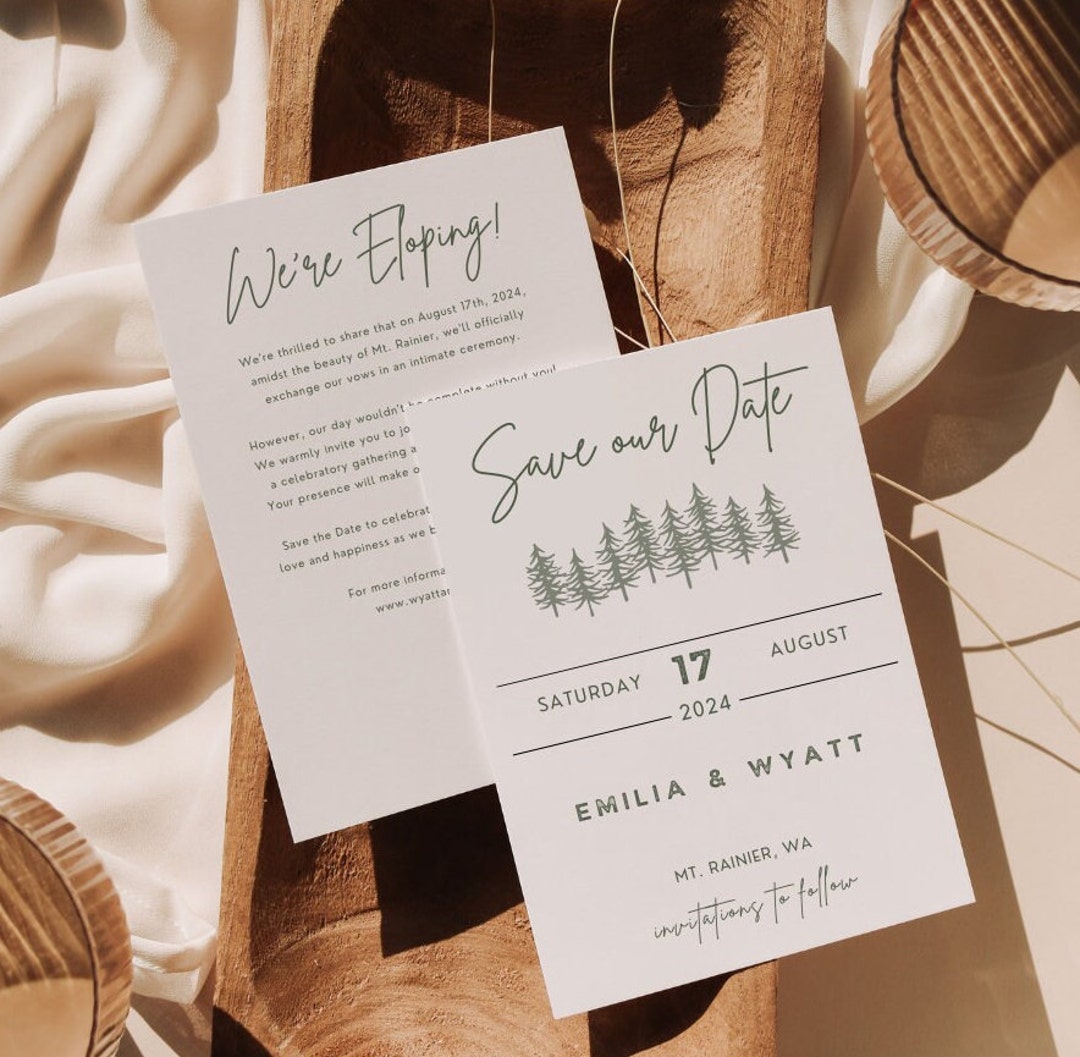 We're Eloping!
We're thrilled to share that on August 17th, 2024,
amidst the beauty of Mt. Rainier, we'll officially
exchange our vows in an intimate ceremony.
However, our day wouldn't be complete without you!
We warmly invite you to
a celebratory gathering
Your presence will make
Save the Date to
love and happiness as we
For more
Save our Date
SATURDAY 17 AUGUST
2024
EMILIA & WYATT
MT. RAINIER, WA
invitations to follow